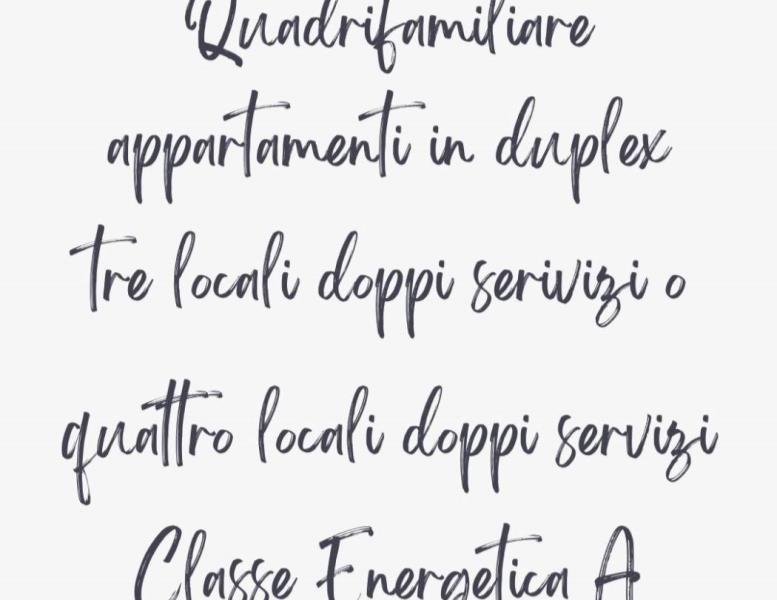 Quadrifamiliare
appartamenti in duplex
tre locali doppi serivizi o
quattro locali doppi servizi
Classe Energetica A